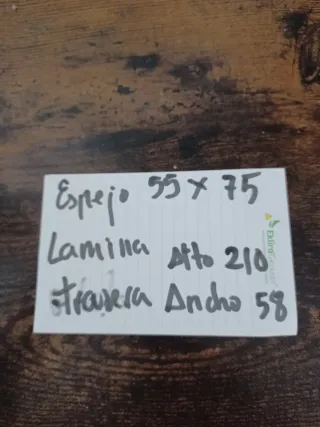 Espejo 55 x 75
Lamina Alto 210
trasera Ancho 58